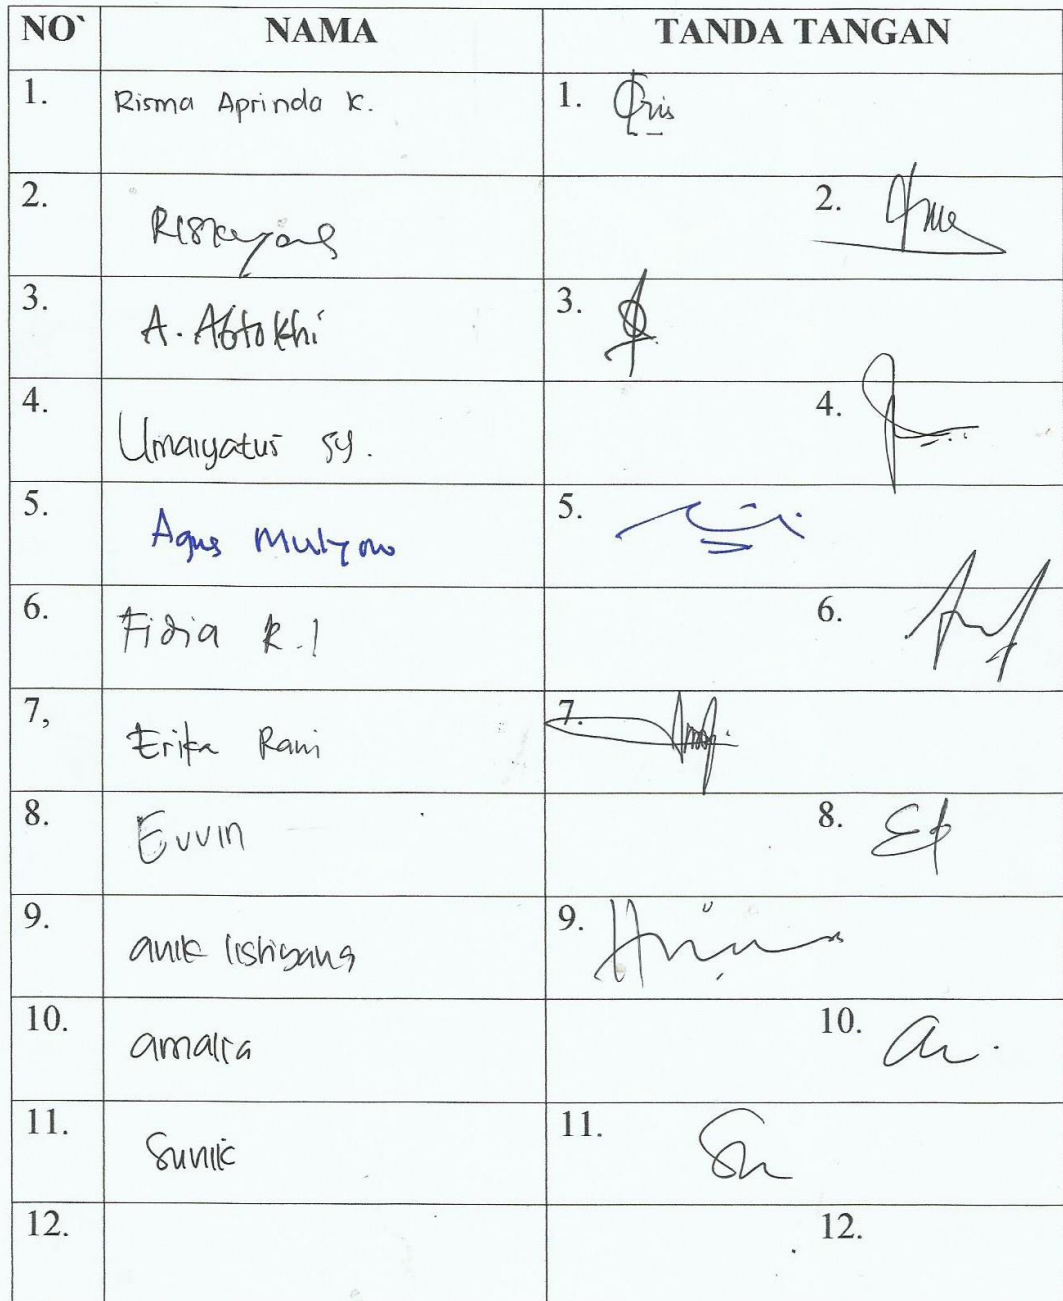 NO` NAMA TANDA TANGAN
1. Risma Aprinda K. 1. Qris
2. 2.
3. A. Abtokhi 3.
4. Umaiyatus sy. 4.
5. Agus Mulyono 5.
6. Fidia R.I 6.
7, Erika Rani 7.
8. Evvin 8.
9. anik 9.
10. amalia 10.
11. Sunik 11.
12. 12.